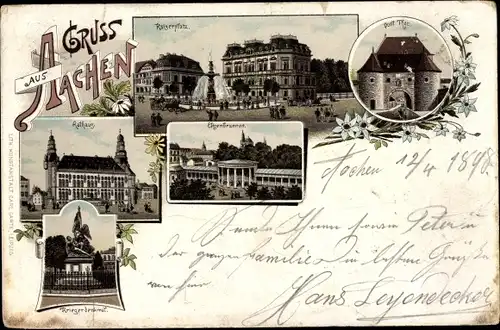 GRUSS
AUS
AACHEN
Kaiserplatz.
Pont Thor.
Rathaus.
Elisenbrunnen.
Kriegerdenkmal.
Aachen 12/4 1898
Sende Ihnen sowie Peter u
der ganzen Familie die besten Grüße
von hier
Hans Leyendecker